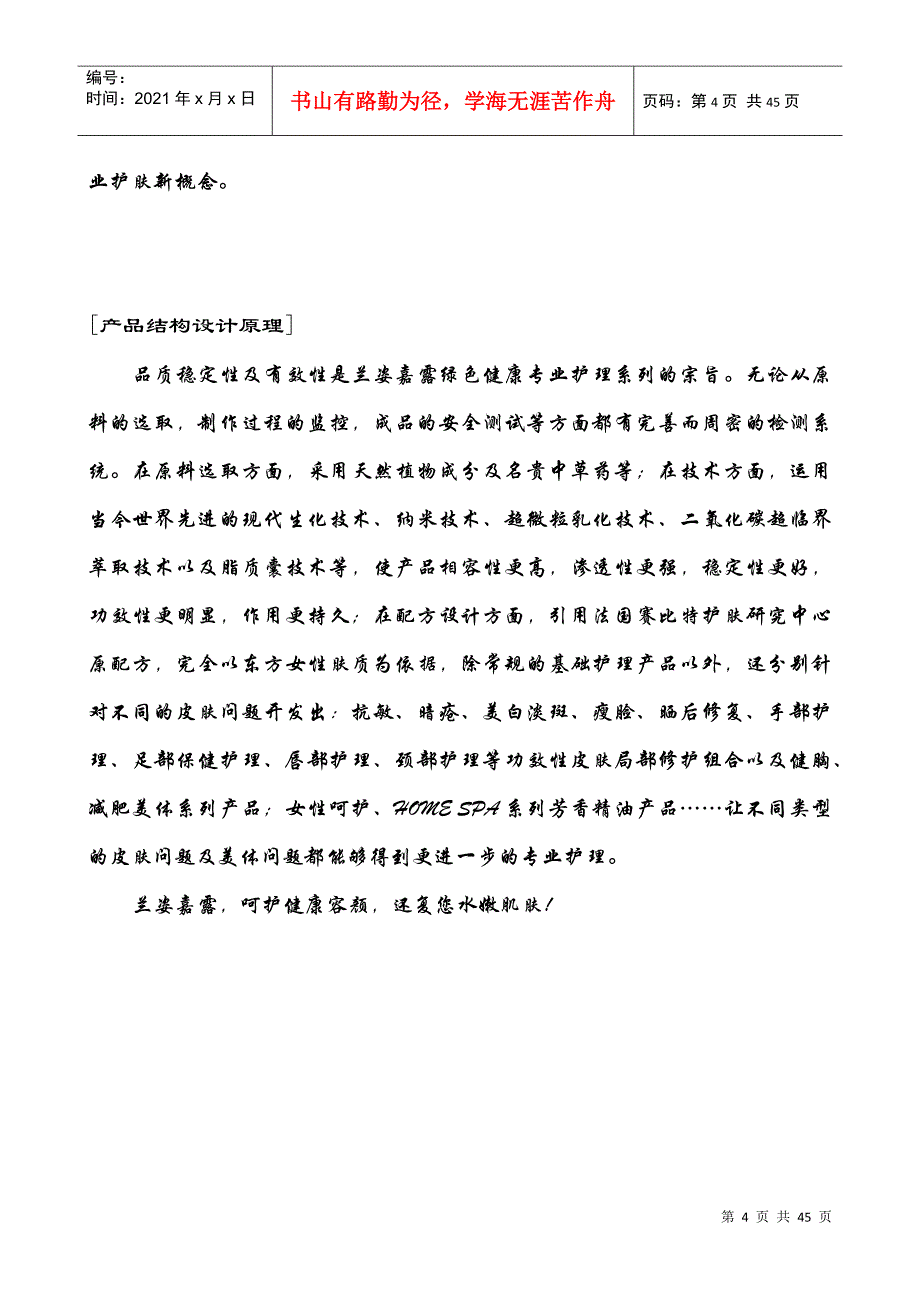 编号：
时间：2021年x月x日
书山有路勤为径，学海无涯苦作舟
页码：第4页 共45页
业护肤新概念。
[产品结构设计原理]
品质稳定性及有效性是兰姿嘉露绿色健康专业护理系列的宗旨。无论从原
料的选取，制作过程的监控，成品的安全测试等方面都有完善而周密的检测系
统。在原料选取方面，采用天然植物成分及名贵中草药等；在技术方面，运用
当今世界先进的现代生化技术、纳米技术、超微粒乳化技术、二氧化碳超临界
萃取技术以及脂质囊技术等，使产品相容性更高，渗透性更强，稳定性更好，
功效性更明显，作用更持久；在配方设计方面，引用法国赛比特护肤研究中心
原配方，完全以东方女性肤质为依据，除常规的基础护理产品以外，还分别针
对不同的皮肤问题开发出：抗敏、暗疮、美白淡斑、瘦脸、晒后修复、手部护
理、足部保健护理、唇部护理、颈部护理等功效性皮肤局部修护组合以及健胸、
减肥美体系列产品；女性呵护、HOME SPA系列芳香精油产品……让不同类型
的皮肤问题及美体问题都能够得到更进一步的专业护理。
兰姿嘉露，呵护健康容颜，还复您水嫩肌肤！
第 4 页 共 45 页